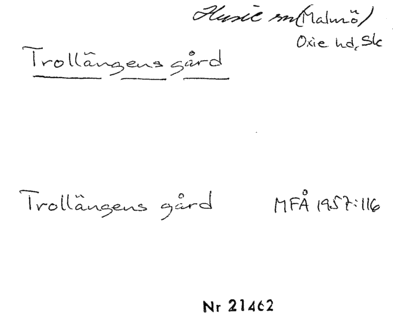 Husie sn (Malmö)
Oxie hd, Sk
Trollängens gård
Trollängens gård MFÅ 1957:116
Nr 21462